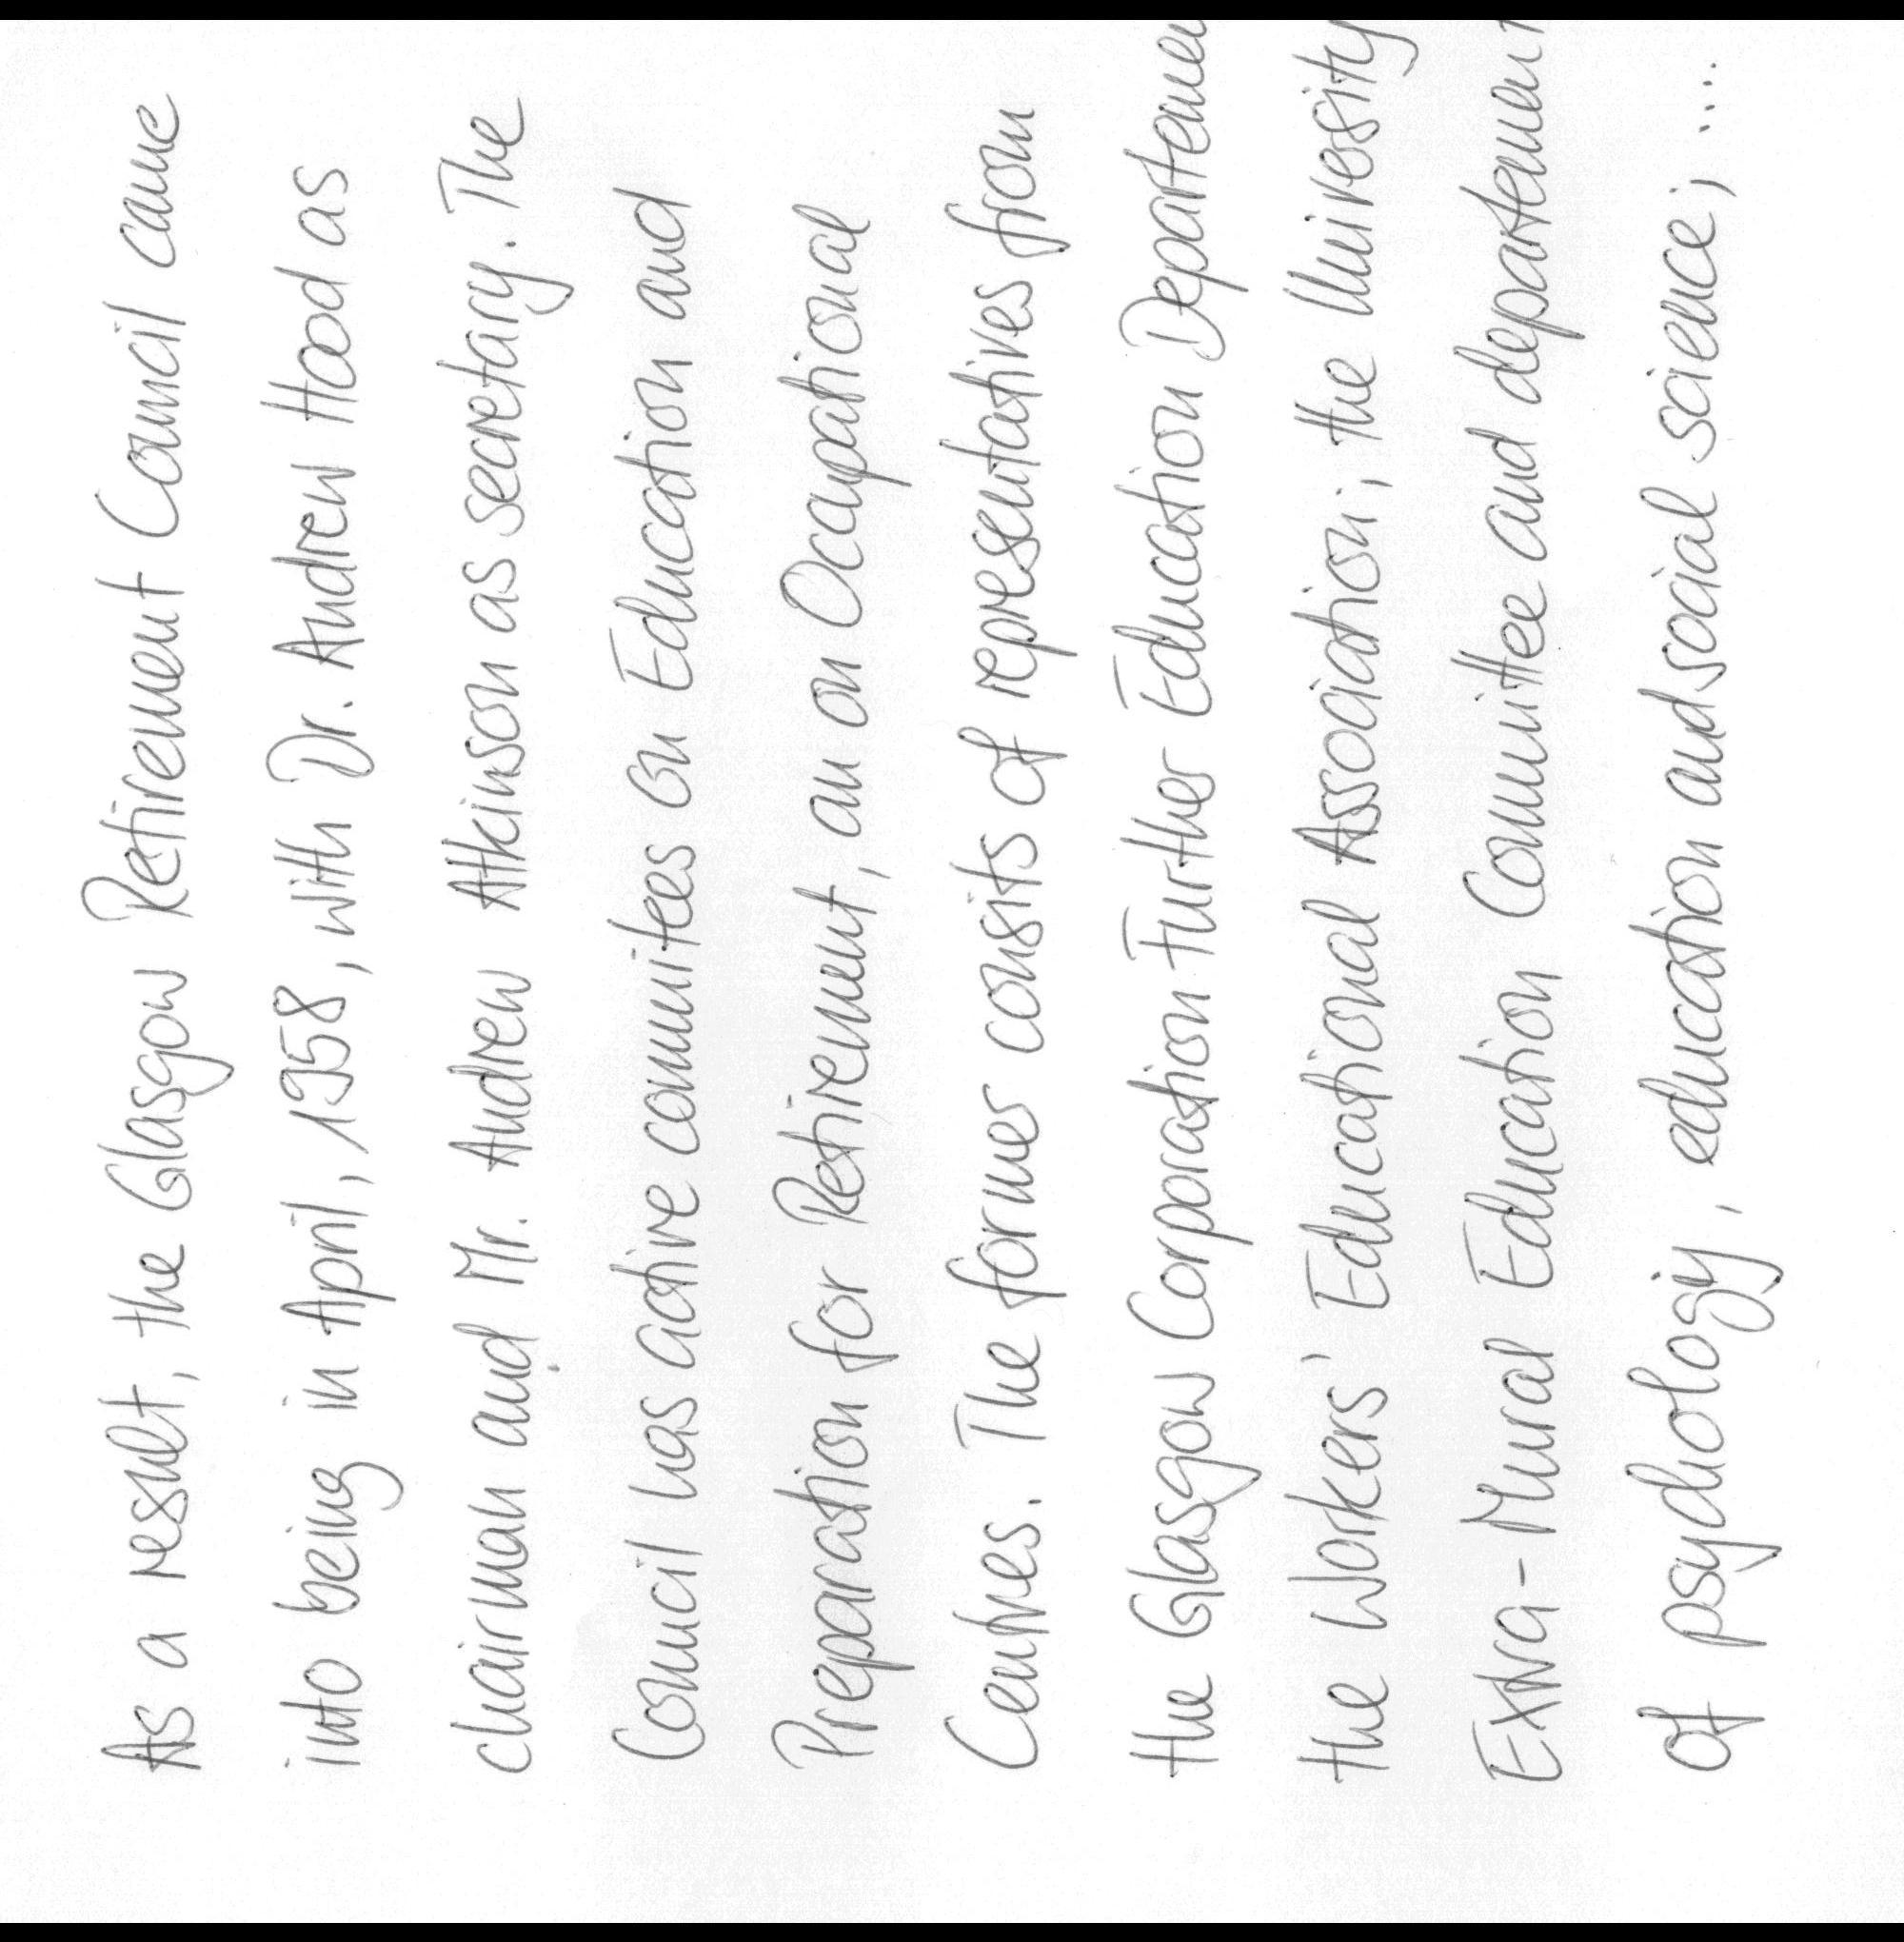 As a result, the Glasgow Retirement Council came
into being in April, 1958, with Dr. Andrew Hood as
chairman and Mr. Andrew Atkinson as secretary. The
Council has active commitees on Education and
Preparation for Retirement, an on Ocupational
Centres. The former consits of representatives from
the Glasgow Corporation Further Education Departemen
the Workers' Educational Association; the University
Extra-Mural Education Committee and departement
of psychology, education and social science; ....